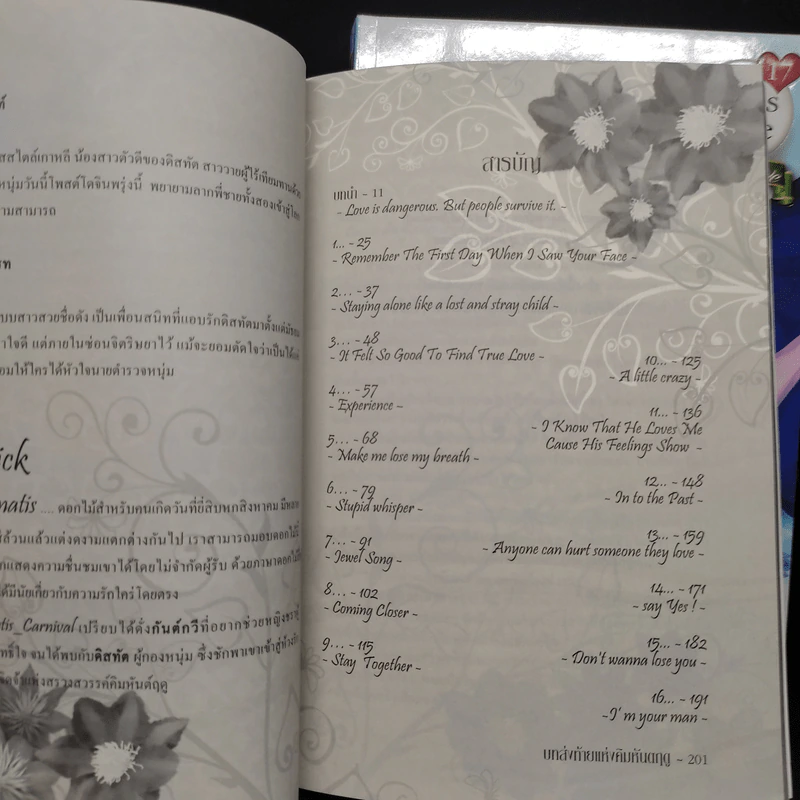 สสไตล์เกาหลี น้องสาวตัวดีของดิสทัต สาววายผู้ไร้เทียมทานด้วย
หนุ่มวันนี้โพสต์โดจินพรุ่งนี้ พยายามลากพี่ชายทั้งสองเข้าสู่โลก
ามสามารถ
บบสาวสวยชื่อดัง เป็นเพื่อนสนิทที่แอบรักดิสทัตมาตั้งแต่
าใจดี แต่ภายในซ่อนจิตริษยาไว้ แม้จะยอมตัดใจว่าเป็นได้แค่
อมให้ใครได้หัวใจนายตำรวจหนุ่ม
ick
matis .... ดอกไม้สำหรับคนเกิดวันที่ยี่สิบหกสิงหาคม มี
ล้วนแล้วแต่งดงามแตกต่างกันไป เราสามารถมอบดอกไม้นี้
แสดงความชื่นชมเขาได้โดยไม่จำกัดผู้รับ ด้วยภาษาดอกไม้
ได้มีนัยเกี่ยวกับความรักใคร่โดยตรง
tis_Carnival เปรียบได้ดั่งกันต์กวีที่อยากช่วยหญิงชรา
จนได้พบกับดิสทัต ผู้กองหนุ่ม ซึ่งชักพาเขาเข้าสู่ห้วงรัก
แห่งสรวงสวรรค์คิมหันต์ฤดู
17
สารบัญ
บทนำ ~ 11
~ Love is dangerous. But people survive it. ~
1... ~ 25
~ Remember The First Day When I Saw Your Face ~
2... ~ 37
~ Staying alone like a lost and stray child ~
3... ~ 48
~ It Felt So Good To Find True Love ~
4... ~ 57
~ Experience ~
5... ~ 68
~ Make me lose my breath ~
6... ~ 79
~ Stupid whisper ~
7... ~ 91
~ Jewel Song ~
8... ~ 102
~ Coming Closer ~
9... ~ 115
~ Stay Together ~
10... ~ 125
~ A little crazy ~
11... ~ 136
~ I Know That He Loves Me
Cause His Feelings Show ~
12... ~ 148
~ In to the Past ~
13... ~ 159
~ Anyone can hurt someone they love ~
14... ~ 171
~ say Yes ! ~
15... ~ 182
~ Don't wanna lose you ~
16... ~ 191
~I' m your man ~
บทส่งท้ายแห่งคิมหันตฤดู ~ 201